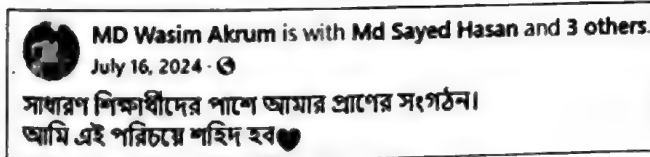 MD Wasim Akrum is with Md Sayed Hasan and 3 others.
July 16, 2024 ·
সাধারণ শিক্ষার্থীদের পাশে আমার প্রাণের সংগঠন।
আমি এই পরিচয়ে শহিদ হব🖤